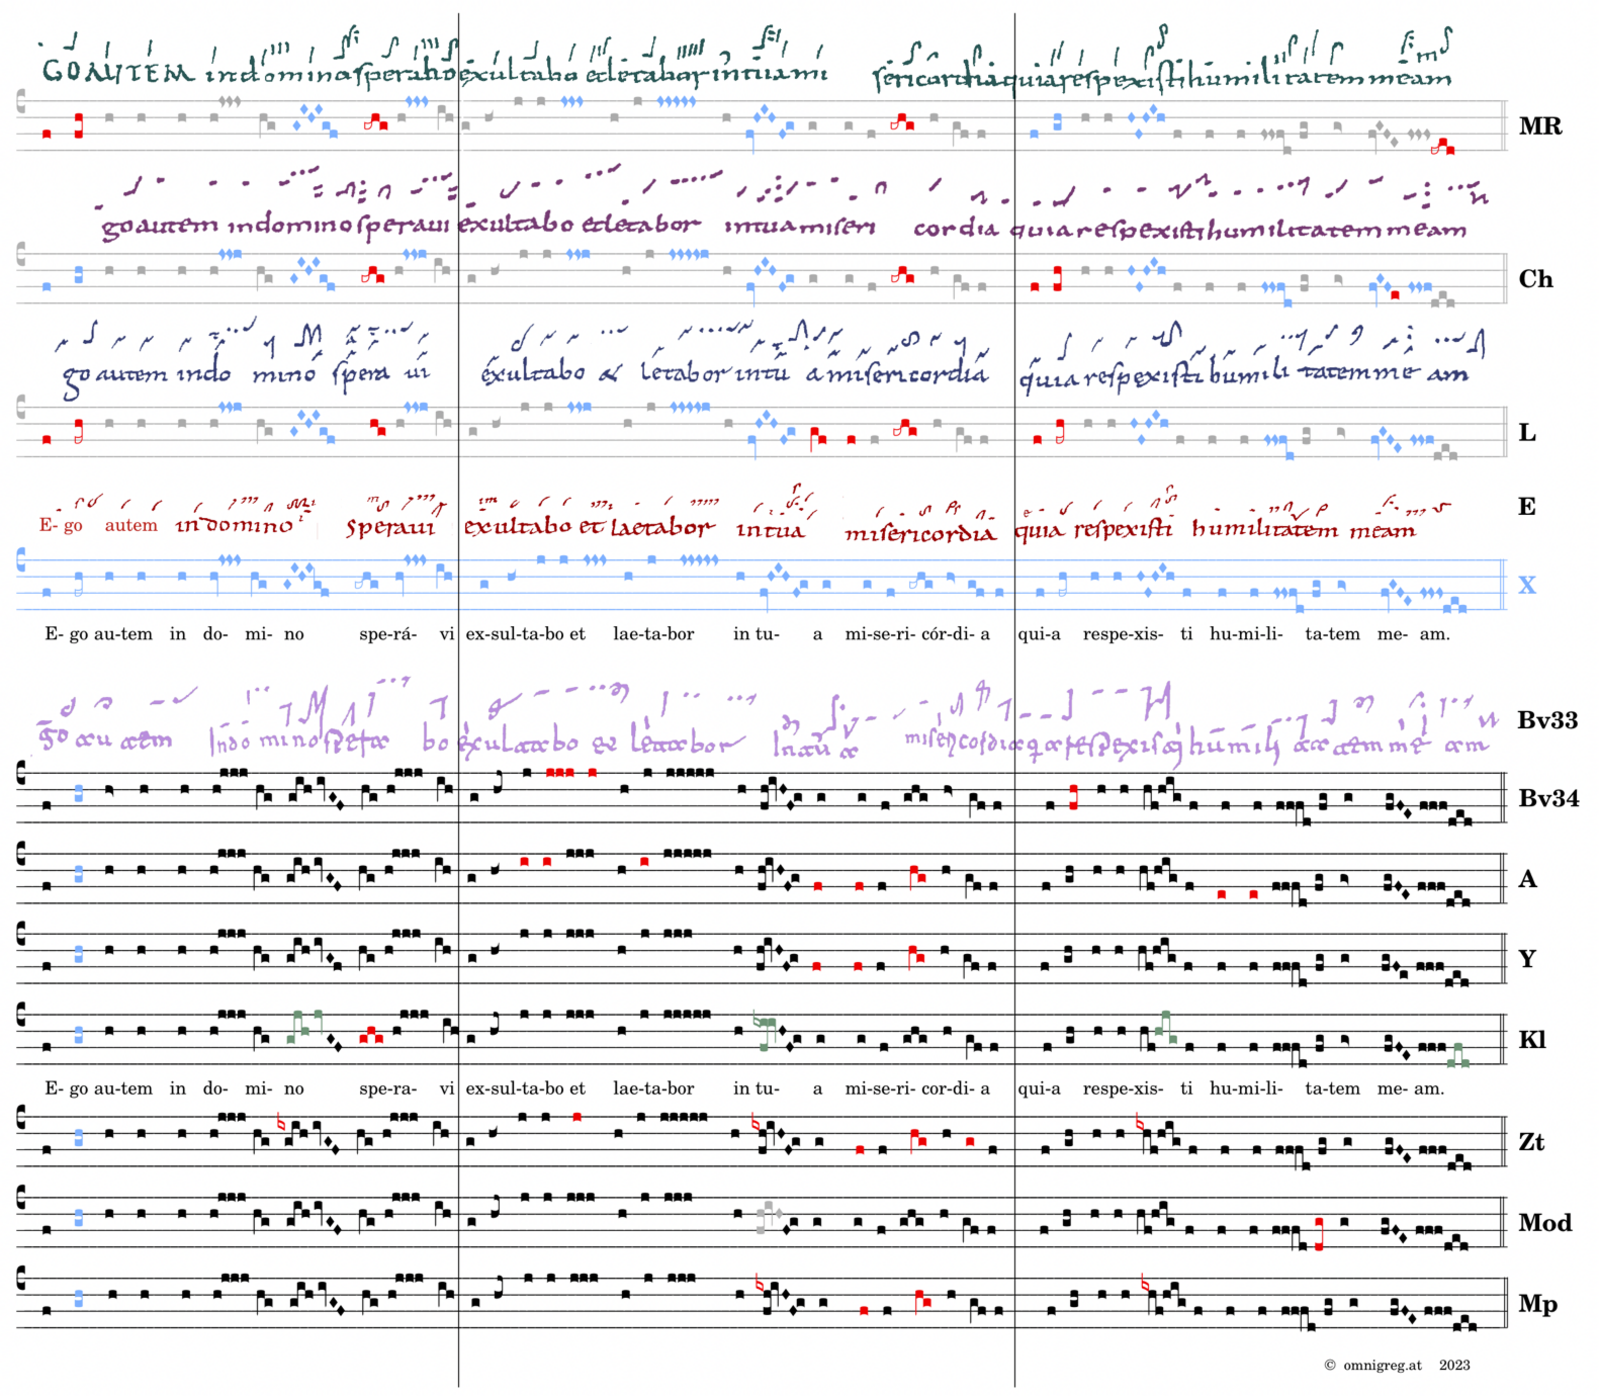 GO AUTEM in domino speravi exultabo et letabor in tua mi sericordia quia respexisti humilitatem meam
MR
go autem in domino speravi exultabo et letabor in tua miseri cordia quia respexisti humilitatem meam
Ch
go autem in do mino spera vi exultabo & letabor in tu a misericordia quia respexisti humili tatem me am
L
E- go autem in domino speravi exultabo et laetabor in tua misericordia quia respexisti humilitatem meam
E
X
E- go au-tem in do- mi- no spe-rá- vi ex-sul-ta-bo et lae-ta-bor in tu- a mi-se-ri- cór-di- a qui-a respe-xis- ti hu-mi-li- ta-tem me- am.
Bv33
Bv34
A
Y
Kl
E- go au-tem in do- mi- no spe-ra- vi ex-sul-ta-bo et lae-ta-bor in tu- a mi-se-ri- cor-di- a qui-a respe-xis- ti hu-mi-li- ta-tem me- am.
Zt
Mod
Mp
© omnigreg.at 2023